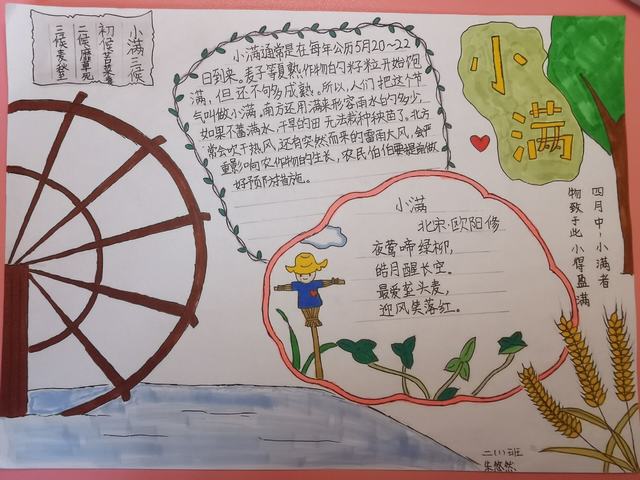 小满三候
初候苦菜秀
二候靡草死
三候麦秋至
小满通常是在每年公历5月20~22
日到来。麦子等夏熟作物的籽粒开始饱
满，但还不够多成熟。所以，人们把这个节
气叫做小满。南方还用满来形容雨水的多少，
如果不蓄满水，干旱的田无法栽种秧苗了。北方
常会吹干热风，还有突然而来的雷雨大风，会严
重影响农作物的生长，农民伯伯要提前做
好预防措施。
小满
小满
北宋·欧阳修
夜莺啼绿柳，
皓月醒长空。
最爱垄头麦，
迎风笑落红。
四月中，小满者
物致于此小得盈满
二(1)班
朱悠然